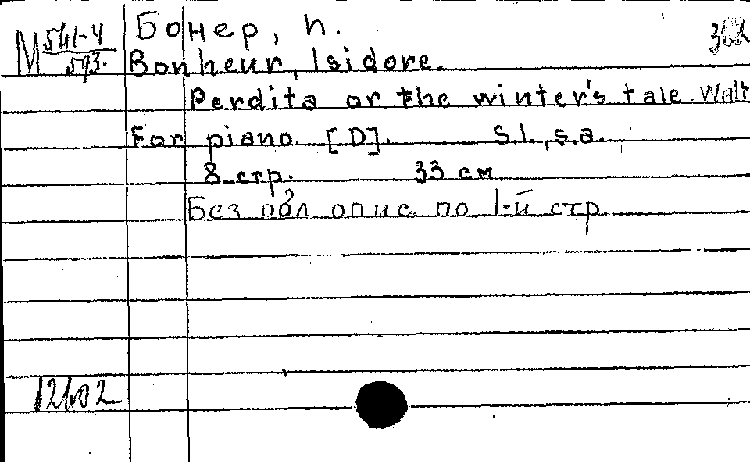 Бонер, И.
M 541-4
593.
Bonheur, Isidore.
Perdita or the winter's tale. Walt
For piano. [D]. S.l., s.a.
8 стр. 33 см
Без опис. по 1-й стр